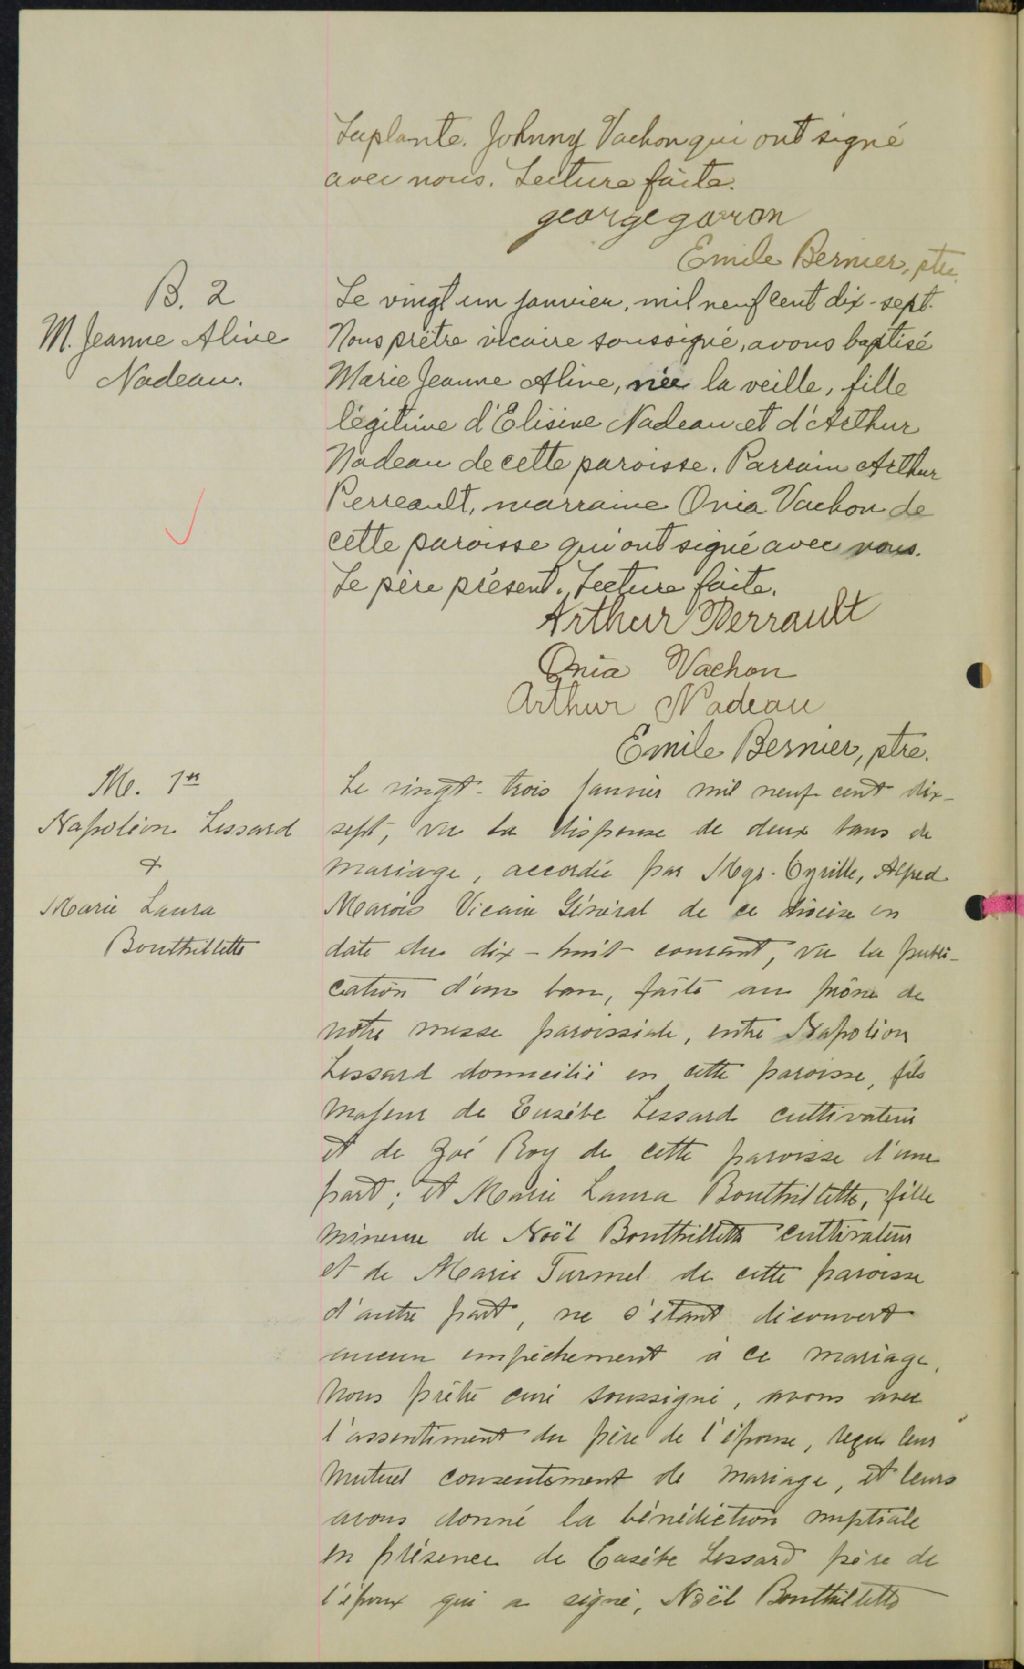 Laplante. Johnny Vachon qui ont signé
avec nous. Lecture faite.
george garon
Emile Bernier, ptre.
B. 2
M. Jeanne Aline
Nadeau.
Le vingt un janvier, mil neuf cent dix-sept.
Nous prêtre vicaire soussigné, avons baptisé
Marie Jeanne Aline, née la veille, fille
légitime d'Elisine Nadeau et d'Arthur
Nadeau de cette paroisse. Parrain Arthur
Perreault, marraine Onia Vachon de
cette paroisse qui ont signé avec nous.
Le père présent. Lecture faite.
Arthur Perrault
Onia Vachon
Arthur Nadeau
Emile Bernier, ptre.
M. 1er
Napoléon Lessard
&
Marie Laura
Bouthillette
Le vingt-trois janvier mil neuf cent dix-
sept, vu la dispense de deux bans de
mariage, accordée par Mgr. Cyrille, Alfred
Marois Vicaire Général de ce diocèse en
date du dix-huit courant, vu la publi-
cation d'un ban, faite au prône de
notre messe paroissiale, entre Napoléon
Lessard domicilié en cette paroisse, fils
majeur de Eusèbe Lessard cultivateur
et de Zoé Roy de cette paroisse d'une
part; et Marie Laura Bouthillette, fille
mineure de Noël Bouthillette cultivateur
et de Marie Turmel de cette paroisse
d'autre part, ne s'étant découvert
aucun empêchement à ce mariage,
Nous prêtre curé soussigné, avons avec
l'assentiment du père de l'épouse, reçu leur
mutuel consentement de mariage, et leurs
avons donné la bénédiction nuptiale
en présence de Eusèbe Lessard père de
l'époux qui a signé, Noël Bouthillette